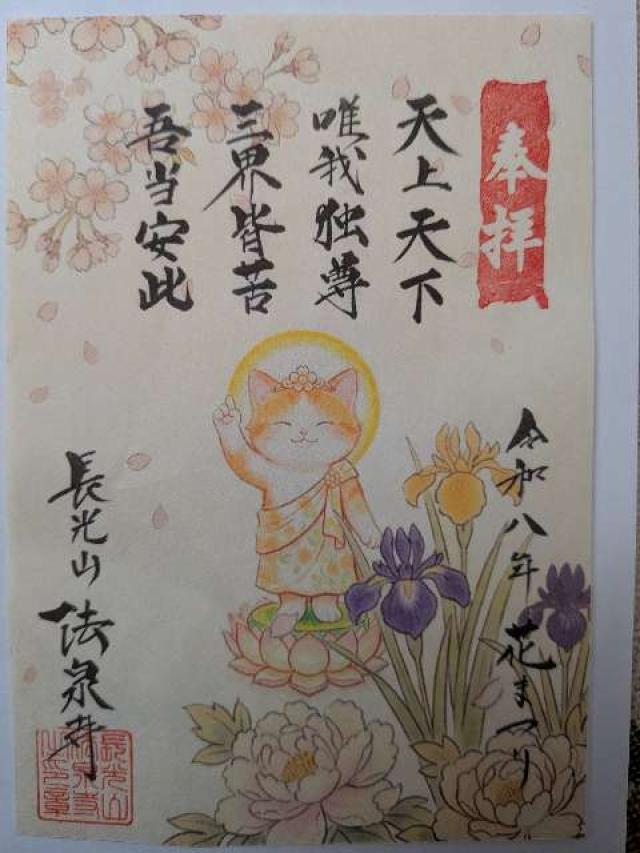 奉拝
天上天下
唯我独尊
三界皆苦
吾当安此
令和八年花まつり
長光山法泉寺